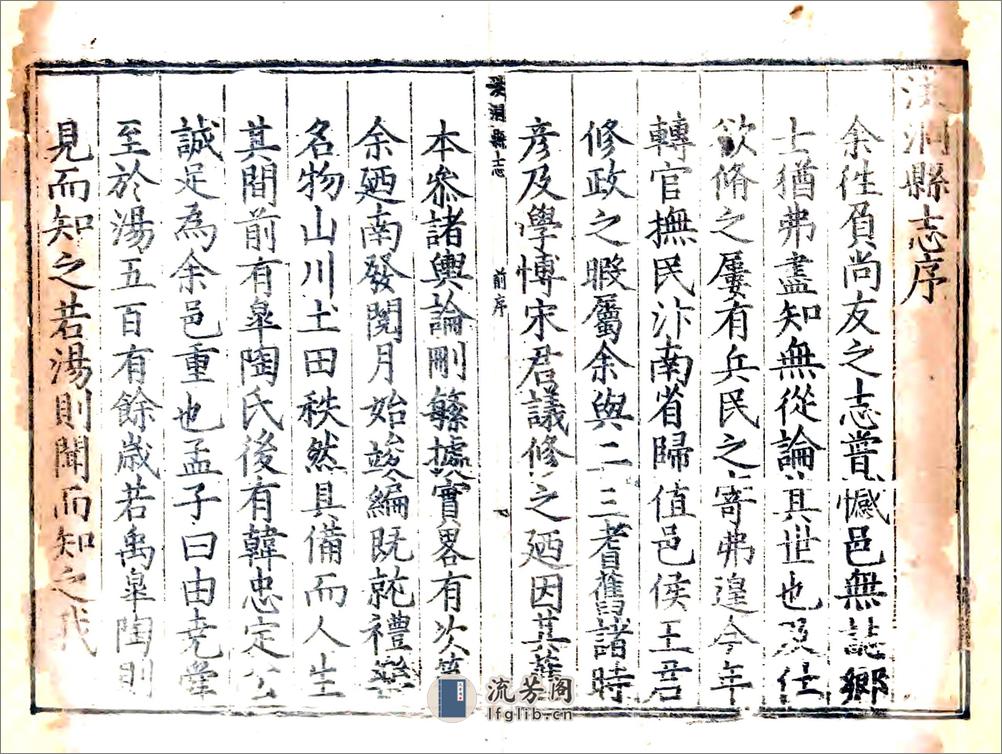 洪洞縣志序
余性負尚友之志嘗憾邑無誌鄉
士猶弗盡知無從論其世也及仕
欲脩之屢有兵民之寄弗遑今年
轉官撫民汴南省歸值邑侯王君
修政之暇屬余與二三耆舊諸時
彥及學博宋君議修之廼因其舊
本叅諸輿論刪繇據實畧有次第
余廼南發閱月始竣編既訖禮樂
名物山川土田秩然具備而人生
其間前有臯陶氏後有韓忠定公
誠足為余邑重也孟子曰由堯舜
至於湯五百有餘歲若禹臯陶則
見而知之若湯則聞而知之我
洪洞縣志
前序
流芳阁
lfglib.cn